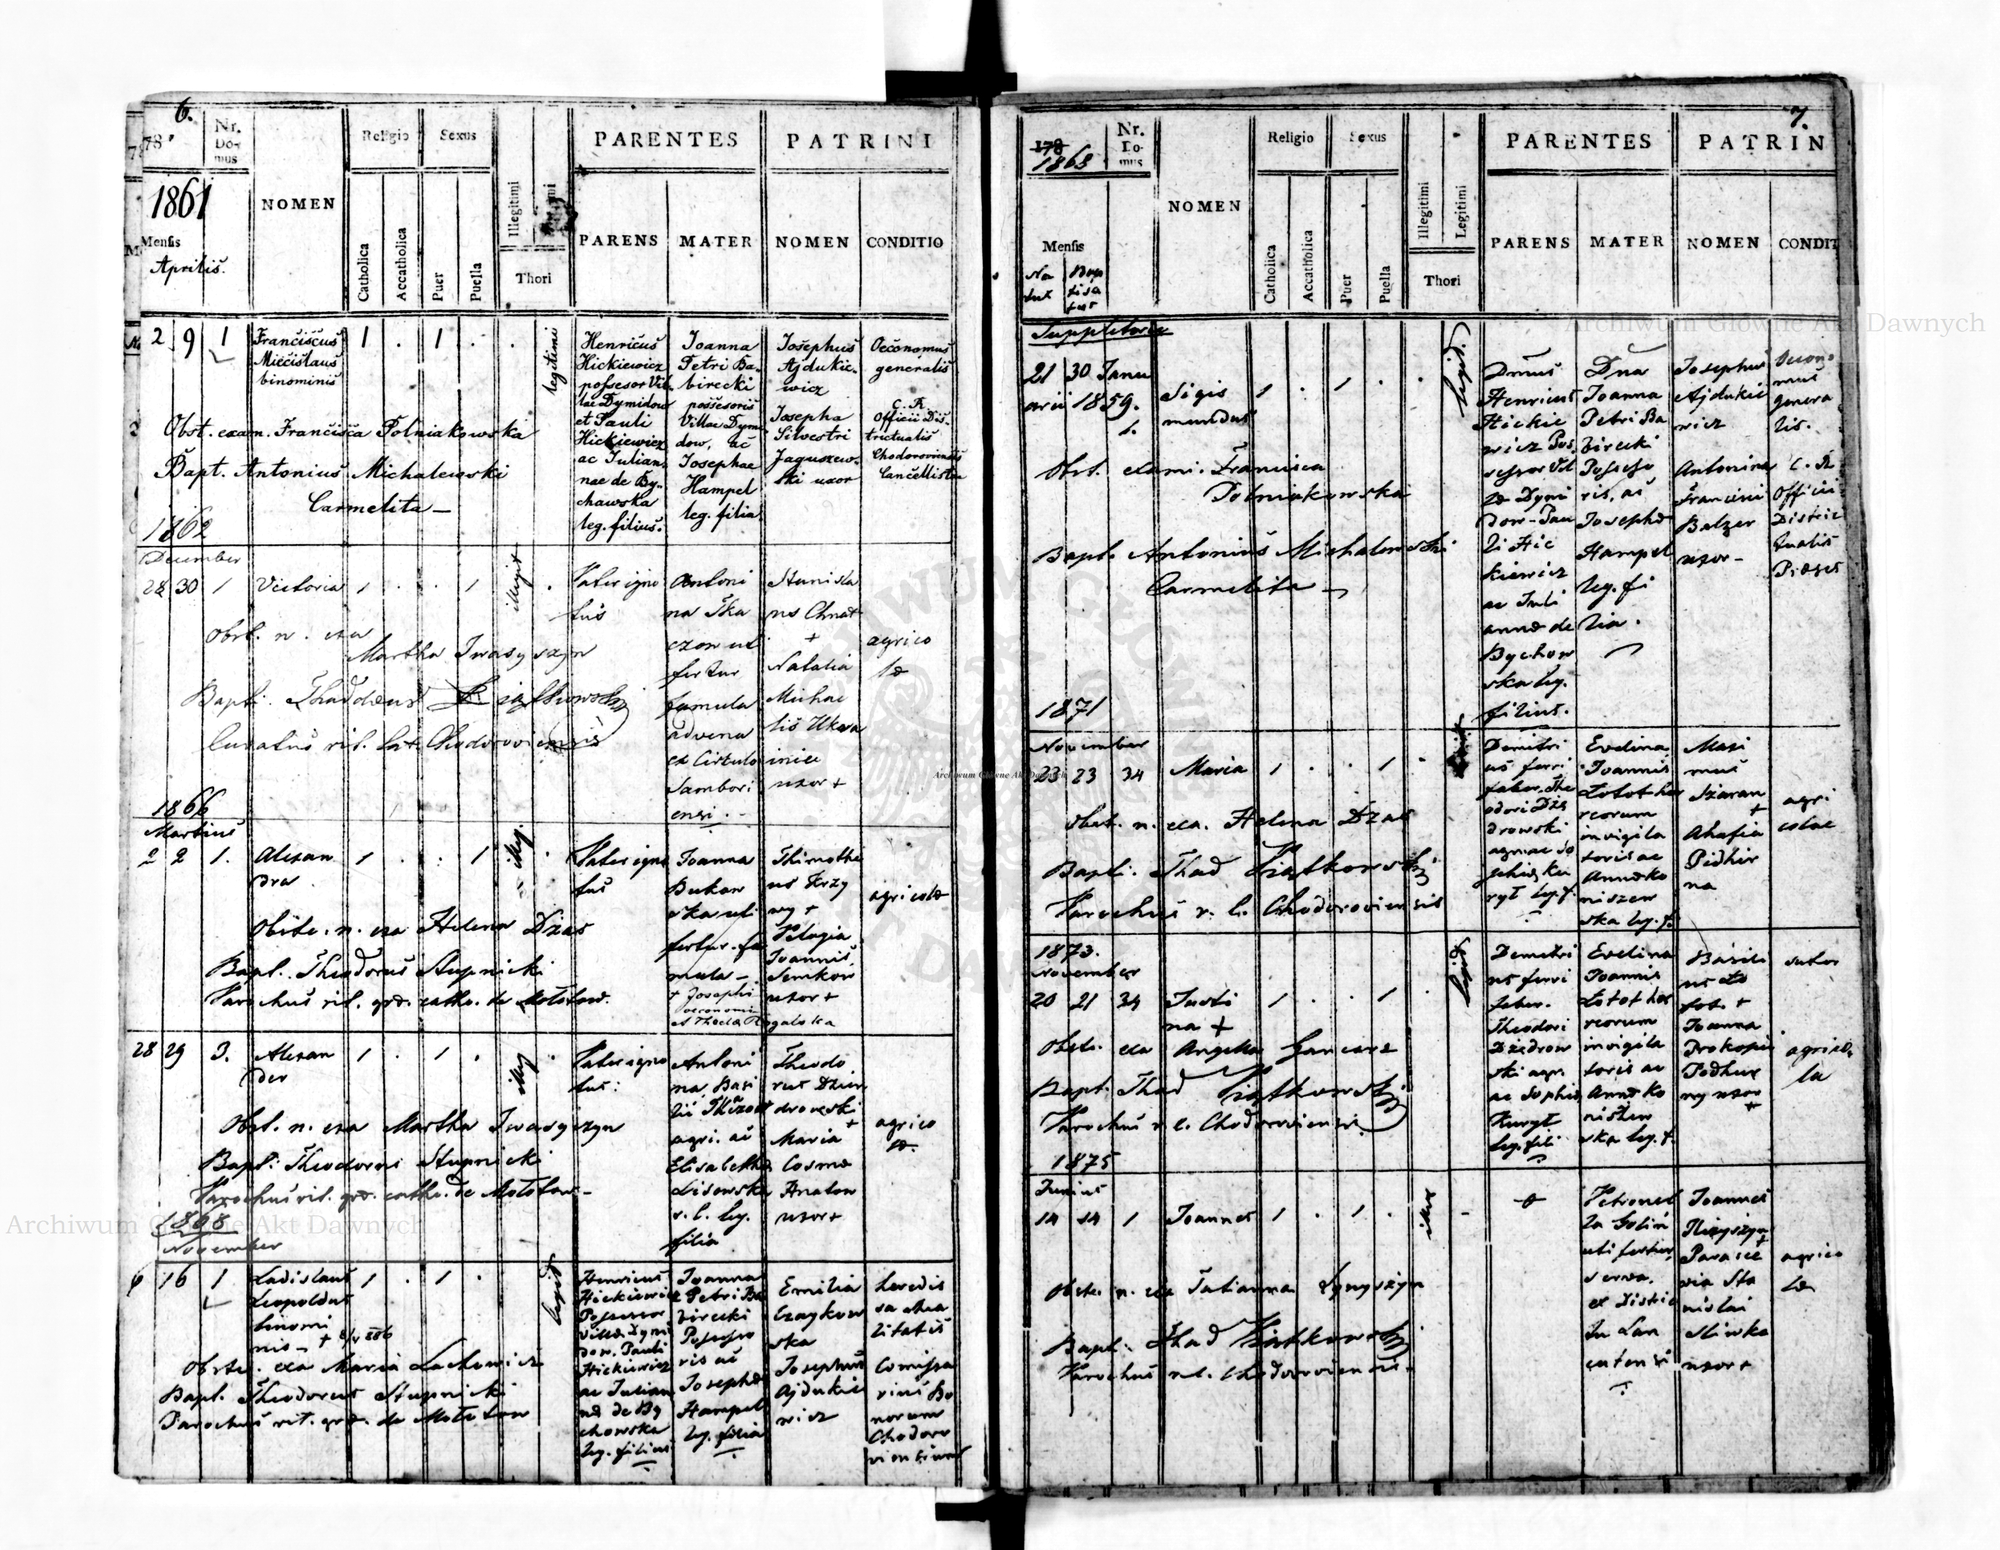 6.
178
Nr. Domus
NOMEN
Religio
Sexus
PARENTES
PATRINI
1861
Mensis
Aprilis.
Catholica
Accatholica
Puer
Puella
Illegitimi
Thori
PARENS
MATER
NOMEN
CONDITIO
2 9 1 Franciscus 1 . 1 . . legitimi
Miecislaus
binominis
Henricus
Hickiewicz
possesor Vil-
lae Dymidow
et Pauli
Hickiewicz
ac Julian-
nae de By-
chawska
leg. filius.
Joanna
Petri Ba-
birecki
possesoris
Villae Dymi-
dow, ac
Josephae
Hampel
leg. filia.
Josephus
Ajdukie-
wicz
Josepha
Silvestri
Jaguszew-
ski uxor
Oeconomus
generalis
C. R.
Officii Dis-
trictualis
Chodoroviensis
Cancellista
Obst. exam. Francisca Polniakowska
Bapt. Antonius Michalewski
Carmelita —
1862
December
28 30 1 Victoria 1 . . 1 illegit .
Pater igno
tus
Antoni
na Tka
czow uti
fertur
famula
advena
ex Circulo
Sambori
ensi . -
Stanisla
us Chnat
+
Natalia
Michae
lis Ukra
iniec
uxor +
agrico
lae
Obst. n. exa
Martha Iwasyszyn
Bapt. Thaddaeus Kiątkowski
Curatus rit. lat. Chodoroviensis
1866
Martius
2 2 1. Alexan 1 . . 1 illeg. .
dra
Pater igno
tus
Joanna
Bukow
ska uti
fertur fa
mula —
+ Josephi
oeconomi
et Thecla Rogalska
Thimothe
us Krzy
wy +
Pelagia
Joannis
Semkow
uxor +
agricolae
Obste. n. exa Helena Dzas
Bapt. Theodorus Stupnicki
Parochus rit. gr. cath. de Molotow.
28 29 3. Alexan 1 . 1 . illeg .
der
Pater igno
tus:
Antoni
na Basi
lii
agri. ac
Elisabetha
Lisowska
r. l. leg.
filia
Theodo
rus Dzien
drowski
+
Maria
Cosmae
Hnatow
uxor +
agrico
lae
Obst. n. exa Martha Iwasyszyn
Bapt. Theodorus Stupnicki
Parochus rit. gr. cath. de Molotow —
1868
November
6 16 1 Ladislaus 1 . 1 . legit
Leopoldus
binomi
nis —
Henricus
Hickiewicz
Possessor
Villae Dymi
dow. Pauli
Hickiewicz
ac Julian
nae de By
chowska
leg. filius
Joanna
Petri Ba
birecki
Possesso
ris ac
Josephae
Hampel
leg. filia
Emilia
Czaykow
ska
Josephus
Ajdukie
wicz
Comissa
rius Bo
norum
Chodoro
viensium
Obste. exa Maria Lachowicz
Bapt. Theodorus Stupnicki
Parochus rit. gr. de Molotow
7.
178
1868
Nr. Domus
NOMEN
Religio
Sexus
PARENTES
PATRIN
Mensis
Na
tus
Bap
tisa
tus
Catholica
Accatholica
Puer
Puella
Illegitimi
Legitimi
Thori
PARENS
MATER
NOMEN
CONDIT
Suppletorie
21 30 Janu
arii 1859.
1.
Sigis 1 . 1 . . legit.
mundus
Dnus
Henricus
Hickie
wicz Pos
sessor Vil
lae Dymi
dow - Pau
li Hic
kiewicz
ac Juli
annae de
Bychow
ska leg.
filius.
Dna
Joanna
Petri Ba
birecki
Possesso
ris, ac
Josephae
Hampel
leg. fi
lia.
Josephus
Ajdukie
wicz
Antonina
Francisci
Balzer
uxor —
Oecono
mus
genera
lis.
C. R.
Officii
District
tualis
Obst. exam. Francisca
Polniakowska
Bapt. Antonius Michalewski
Carmelita —
1871
November
23 23 34 Maria 1 . . 1 .
Demitri
us ferri
faber, The
odori Dzę
drowski
agr. ac So
phiae Ku
ryt leg. f.
Evelina
Joannis
Lototzki
reorum
invigila
toris ac
Annae Ko
niszew
ska leg. f.
Maxi
mus
Szaran
+
Ahafia
Pidhir
na
agri
colae
Obst. n. exa. Helena Dzas
Bapt: Thad Kiątkowski
Parochus r. l. Chodoroviensis
1873.
November
20 21 34 Justi 1 . . 1 legit.
na +
Demetri
us ferri
faber.
Theodori
Dzędrow
ski agr.
ac Sophiae
Kuryt
leg. fili
Evelina
Joannis
Lototzki
reorum
invigila
toris ac
Annae Ko
niszew
ska leg. f.
Basili
us
+
Joanna
Prokopii
Podhor
ny uxor
+
sutor
agrico
la
Obste. exa Angela Gancarz
Bapt. Thad Kiątkowski
Parochus r. l. Chodoroviensis.
1875
Junius
14 14 1 Joannes 1 . 1 . illeg -
Petronel
la
uti fertur,
serva,
ex Distric
tu Lan
cutensi
Joannes
+
Parasce
via Sta
nislai
Sliwka
uxor +
agrico
lae
Obste. n. exa Tatianna Lynyszyn
Bapt. Thad Kiątkowski
Parochus r. l. Chodoroviensis.
Archiwum Główne Akt Dawnych
Archiwum Główne Akt Dawnych
Archiwum Główne Akt Dawnych